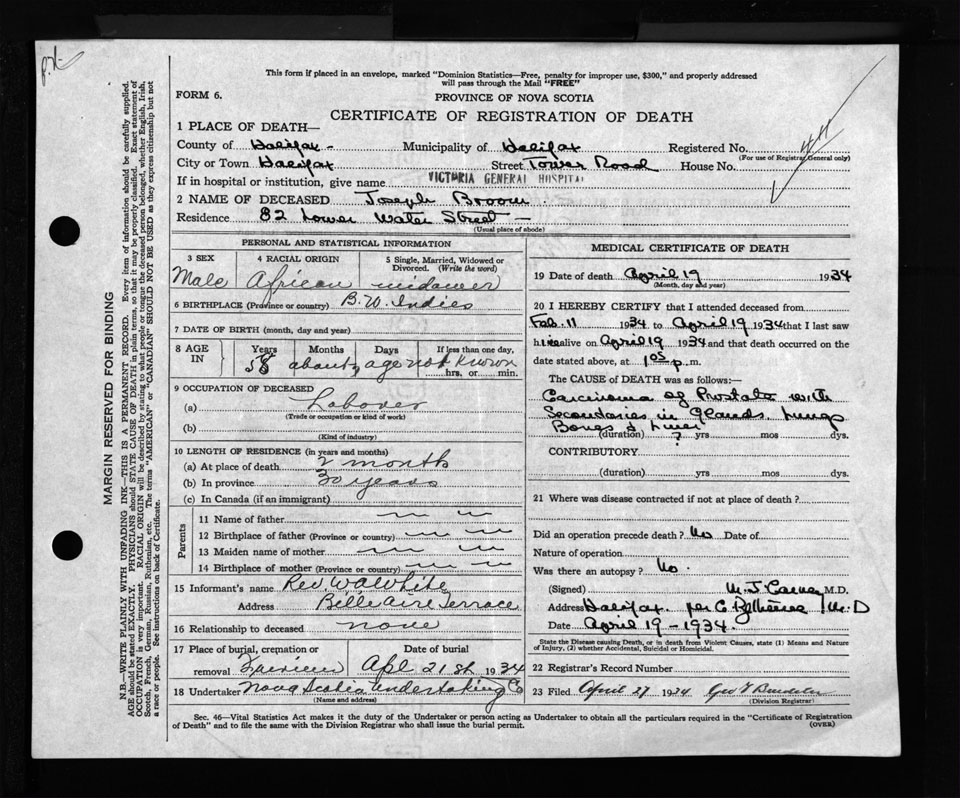 This form if placed in an envelope, marked "Dominion Statistics—Free, penalty for improper use, $300," and properly addressed
will pass through the Mail "FREE"
FORM 6.
PROVINCE OF NOVA SCOTIA
CERTIFICATE OF REGISTRATION OF DEATH
1 PLACE OF DEATH—
County of Halifax - Municipality of Halifax Registered No.
(For use of Registrar General only)
City or Town Halifax Street Tower Road House No.
If in hospital or institution, give name VICTORIA GENERAL HOSPITAL
2 NAME OF DECEASED Joseph Broom
Residence 82 Lower Water Street —
(Usual place of abode)
PERSONAL AND STATISTICAL INFORMATION
3 SEX 4 RACIAL ORIGIN 5 Single, Married, Widowed or Divorced. (Write the word)
Male African widower
6 BIRTHPLACE (Province or country) B.W. Indies
7 DATE OF BIRTH (month, day and year)
8 AGE IN Years Months Days If less than one day,
58 about, age not known hrs. or min.
9 OCCUPATION OF DECEASED
(a) Laborer
(Trade or occupation or kind of work)
(b)
(Kind of industry)
10 LENGTH OF RESIDENCE (in years and months)
(a) At place of death 2 month
(b) In province 30 years
(c) In Canada (if an immigrant)
Parents
11 Name of father
12 Birthplace of father (Province or country)
13 Maiden name of mother
14 Birthplace of mother (Province or country)
15 Informant's name Rev W A White
Address Belle Aire Terrace
16 Relationship to deceased none
17 Place of burial, cremation or removal Fairview
Date of burial Apl 21st 1934
18 Undertaker Nova Scotia Undertaking Co
(Name and address)
MEDICAL CERTIFICATE OF DEATH
19 Date of death April 19 1934
(Month, day and year)
20 I HEREBY CERTIFY that I attended deceased from
Feb. 11 1934 to April 19 1934 that I last saw
h im alive on April 19 1934 and that death occurred on the
date stated above, at 1 05 p.m.
The CAUSE of DEATH was as follows:—
Carcinoma of Prostate with
Secondaries in glands Lungs
Bones & Liver
(duration) ? yrs mos dys.
CONTRIBUTORY
(duration) yrs. mos. dys.
21 Where was disease contracted if not at place of death?
Did an operation precede death? No Date of
Nature of operation
Was there an autopsy? No.
(Signed) M. J. Carney M.D.
Address Halifax. per C M.D
Date April 19 - 1934.
State the Disease causing Death, or in death from Violent Causes, state (1) Means and Nature
of Injury, (2) whether Accidental, Suicidal or Homicidal.
22 Registrar's Record Number
23 Filed April 27 1934 Geo
(Division Registrar)
Sec. 46—Vital Statistics Act makes it the duty of the Undertaker or person acting as Undertaker to obtain all the particulars required in the "Certificate of Registration
of Death" and to file the same with the Division Registrar who shall issue the burial permit.
(OVER)
MARGIN RESERVED FOR BINDING
N.B.—WRITE PLAINLY WITH UNFADING INK—THIS IS A PERMANENT RECORD. Every item of information should be carefully supplied.
AGE should be stated EXACTLY. PHYSICIANS should STATE CAUSE OF DEATH in plain terms, so that it may be properly classified. Exact statement of
OCCUPATION is very important. RACIAL ORIGIN will be described by stating to what people or tongue the deceased person belonged, whether English, Irish,
Scotch, French, German, Russian, Ruthenian, etc. The terms "AMERICAN" or "CANADIAN" SHOULD NOT BE USED as they express citizenship but not
a race or people. See instructions on back of Certificate.